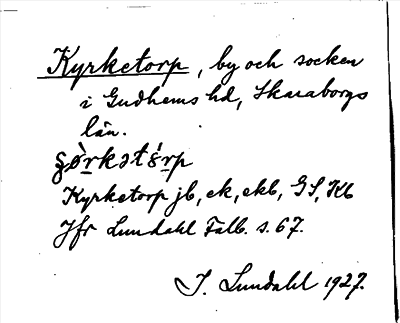 Kyrketorp, by och socken
i Gudhems hd, Skaraborgs
län.
Kyrketorp jb, ek, ekb, GS, Kb
Jfr Lundahl Falb. s. 67.
I. Lundahl 1927.